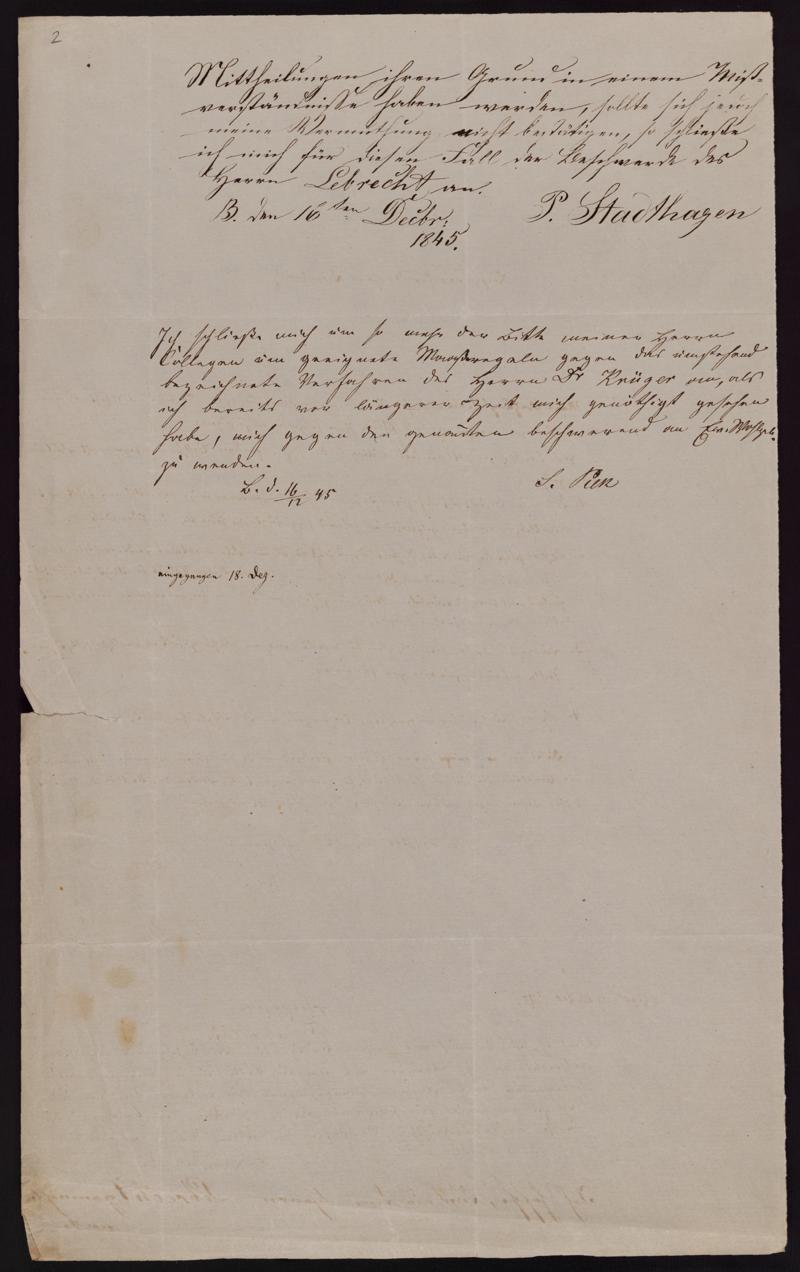 2
Mittheilungen ihren Grund in einem Miß-
verständnisse haben werden, sollte sich jedoch
meine Vermuthung nicht bestätigen, so schließe
ich mich für diesen Fall der Beschwerde des
Herrn Lebrecht an.
B. den 16ten Decbr:
1845.
P. Stadthagen
Ich schließe mich um so mehr der Bitte meiner Herrn
Collegen um geeignete Maaßregeln gegen das umstehend
bezeichnete Verfahren des Herrn Dr Krüger an, als
ich bereits vor längerer Zeit mich genöthigt gesehen
habe, mich gegen den genannten beschwerend an Ew. Wohlgeb.
zu wenden.
B. d. 16/12 45
S. Pick
eingegangen 18. Dez.